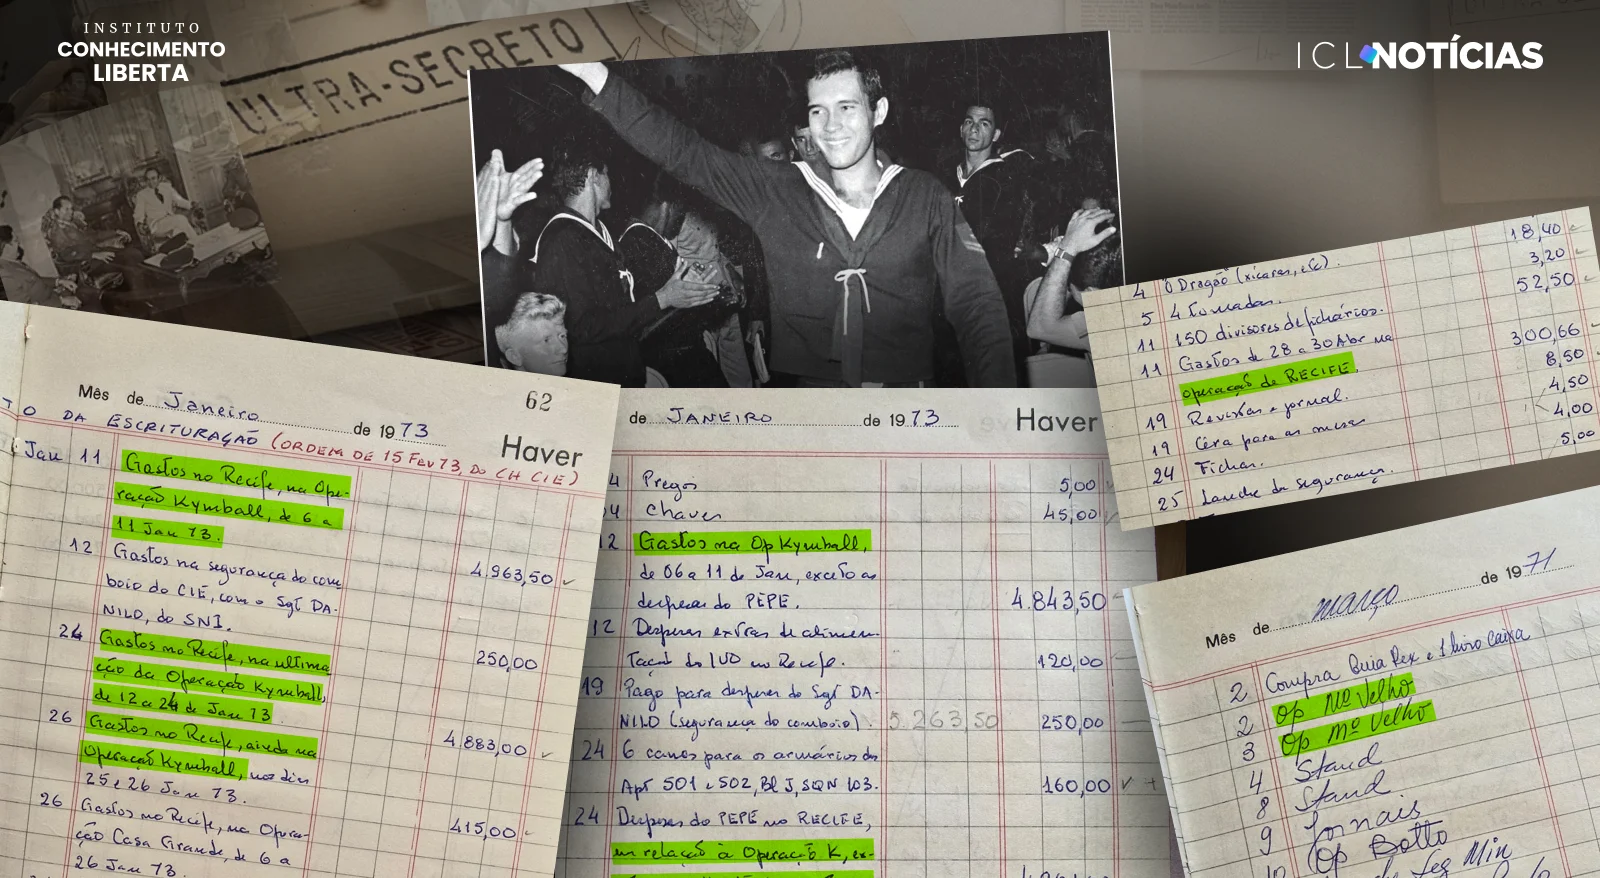 INSTITUTO
CONHECIMENTO
LIBERTA
ULTRA-SECRETO
ICL NOTÍCIAS
Mês de Janeiro de 1973
62
TO DA ESCRITURAÇÃO (ORDEM DE 15 FEV 73, DO CH CIE)
Haver
Jan 11 Gastos no Recife, na Ope-
ração Kymball, de 6 a
11 Jan 73.
4.963,50
12 Gastos na segurança do com
boio do CIE, com o Sgt DA-
NILO, do SNI.
250,00
24 Gastos no Recife, na ultima
ação da Operação Kymball,
de 12 a 24 de Jan 73
4.883,00
26 Gastos no Recife, ainda na
Operação Kymball, nos dias
25 e 26 Jan 73.
415,00
26 Gastos no Recife, na Opera-
ção Casa Grande, de 6 a
26 Jan 73.
de JANEIRO de 1973 Haver
4 Pregos 5,00
04 Chaves 45,00
12 Gastos na Op Kymball,
de 06 a 11 de Jan, exceto as
despesas do PEPE. 4.843,50
12 Despesas extras de alimen-
tação do IVO no Recife. 120,00
19 Pago para despesas do Sgt DA-
NILO (segurança do comboio). 5.263,50 250,00
24 6 canos para os armários dos
Apt 501 e 502, Bl J, SQN 103. 160,00
24 Despesas do PEPE no RECIFE,
em relação à Operação K, ex-
18,40
4 O Dragão (xícaras, etc). 3,20
5 4 tomadas. 52,50
11 150 divisores de fichários.
11 Gastos de 28 a 30 Abr na 300,66
operação de RECIFE. 8,50
19 Revistas e jornal. 4,50
19 Cera para as mesas 4,00
24 Fichas. 5,00
25 Lanche da segurança.
Mês de março de 1971
2 Compra Guia Rex e 1 livro caixa
2 Op Mº Velho
3 Op Mº Velho
4 Stand
8 Stand.
9 Jornais
10 Op Botto
Seg Min